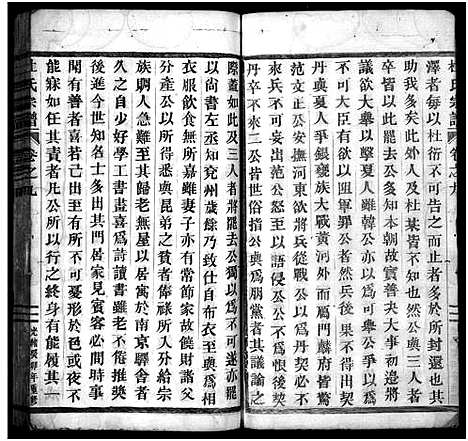 杜氏宗譜 卷之九
澤者每以杜衍不可告之而止者多於所封還也其
助我多矣此外人及杜某皆不知也然公與三人者
卒皆以此罷去公多知本朝故實善決大事初邊將
議欲大舉以擊夏人雖韓公亦以爲可舉公爭以爲
不可大臣欲以沮軍罪公者然兵後果不得出契
丹與夏人爭銀甕族大戰黃河外而雁門麟府皆警
范公安撫河東欲將兵從公以爲契丹必不來兵不
可妄出范公怒至以語侵公公不爲恨後契
丹卒不來二公皆世俗指公與爲朋黨者其議論之
際蓋如此及三人者將罷去公獨以爲不可遂亦罷
以尚書左丞知兖州歲餘乃致仕公自布衣至爲相
衣服飲食無所加雖妻子亦有常節家故饒財諸父
分產公以所得悉與昆弟之貧者俸祿所入分給宗
族賙人急難至其歸老無屋以居寓於南京驛舍者
久之自少好學工書畫喜爲詩讀書雖老不倦推獎
後進今世知名士多出其門居家見賓客必問時事
聞有善者喜若己出至有所不可憂形於色或夜不
能寐如任其責者凡公所以行之終身有能履其一
杜氏宗譜 卷之九
光緒癸卯年重修